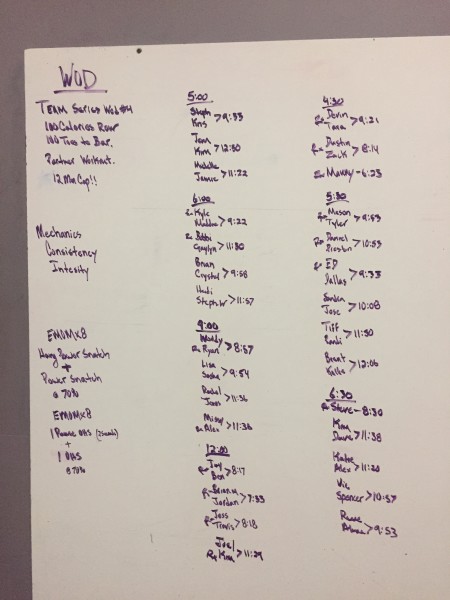 WOD
Team Series Wod #4
100 Calories Row
100 Toes to Bar.
Partner Workout.
12 Min Cap!!
Mechanics
Consistency
Intesity
EMOMx8
Hang Power Snatch
+
Power Snatch
@ 70%
EMOMx8
1 Pause OHS
+
1 OHS
@ 70%
5:00
Steph
Kris > 9:33
Jenn
Kim > 12:30
Michelle
Jamie > 11:22
6:00
Rx Kyle
Maddie > 9:22
Rx Bobbi
> 11:30
Brian
Crystal > 9:58
Heidi
Steph W > 11:57
9:00
Mandy
Rx Ryan > 8:57
Lisa
Sasha > 9:54
Rachel
> 11:36
Missy
Rx Alex > 11:36
12:00
Rx Jay
Ben > 8:17
Rx Brianna
Jordan > 7:33
Jess
Rx Travis > 8:18
Joel
Rx Kim > 11:29
4:30
Rx Devin
Tara > 9:21
Rx Dustin
Zack > 8:14
Rx Manny - 6:23
5:30
Rx Mason
Tyler > 9:53
Rx Daniel
Preston > 10:53
Rx ED
Dallas > 9:33
Jose > 10:08
Tiff
Randi > 11:30
Brent
Kellie > 12:06
6:30
Rx Steve - 8:30
Kim
Dave > 11:38
Katie
Alex > 11:20
Vic
Spencer > 10:57
> 9:53